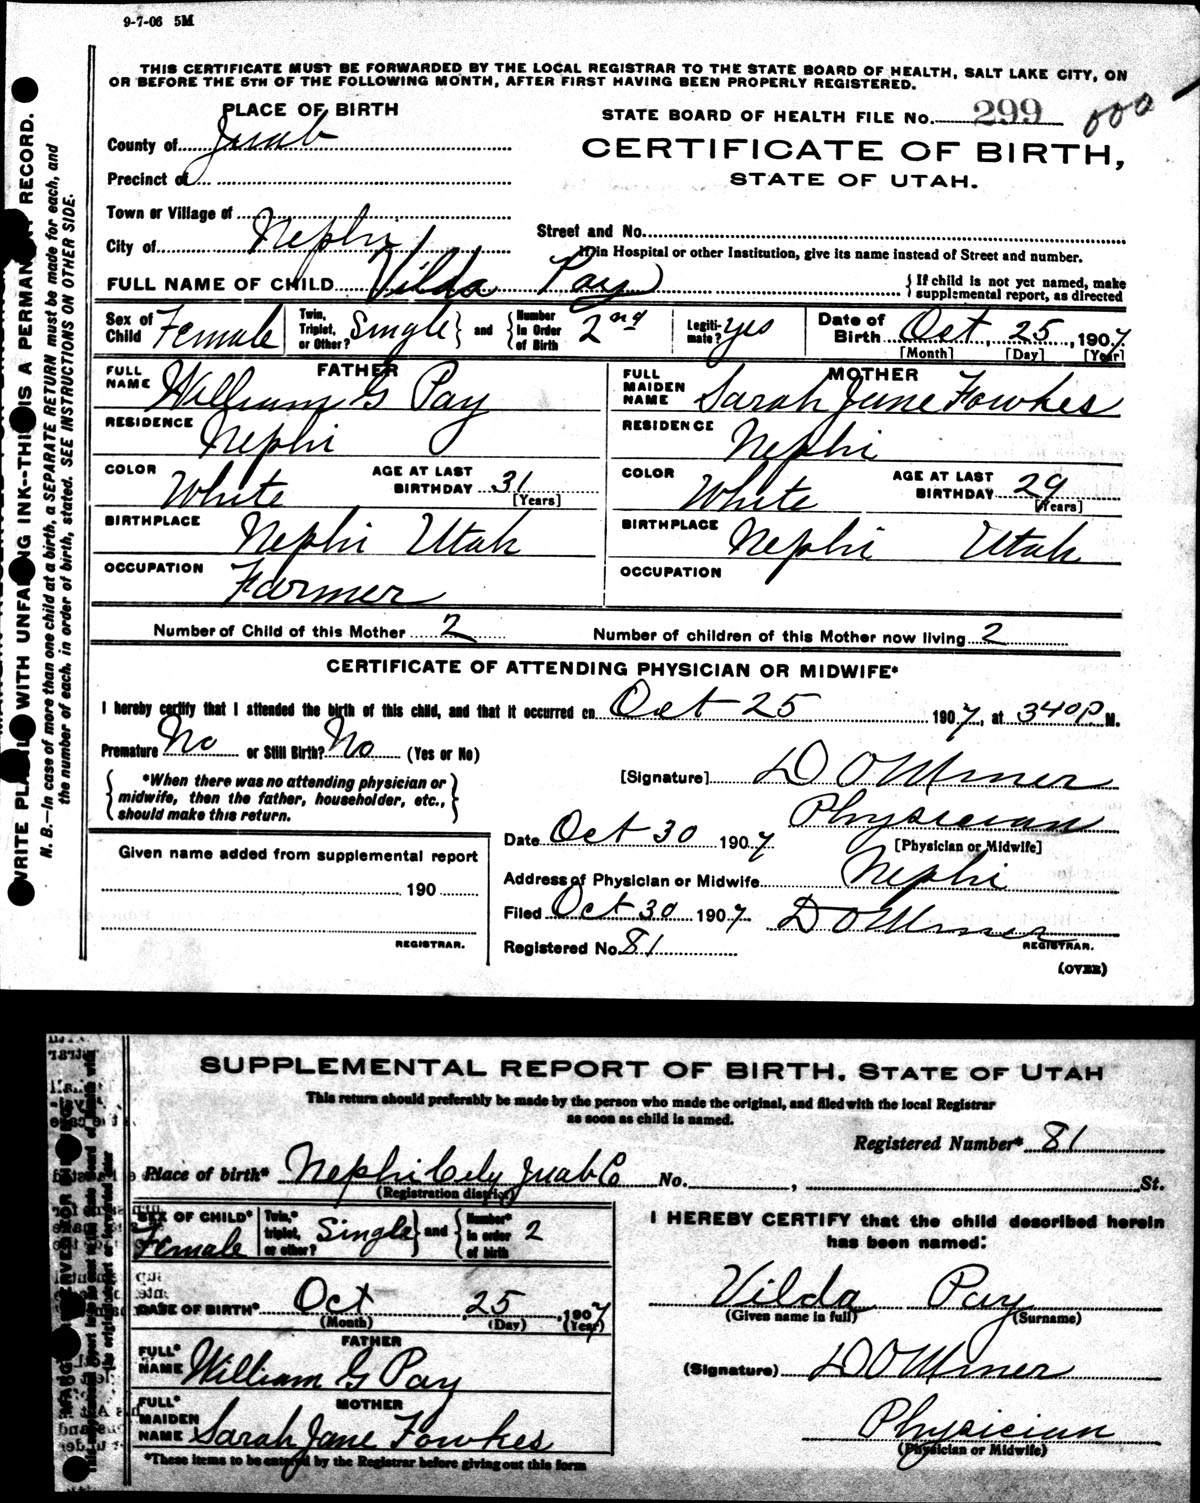 9-7-06 5M
THIS CERTIFICATE MUST BE FORWARDED BY THE LOCAL REGISTRAR TO THE STATE BOARD OF HEALTH, SALT LAKE CITY, ON
OR BEFORE THE 5TH OF THE FOLLOWING MONTH, AFTER FIRST HAVING BEEN PROPERLY REGISTERED.
PLACE OF BIRTH
STATE BOARD OF HEALTH FILE No. 299 000
County of Juab
CERTIFICATE OF BIRTH,
STATE OF UTAH.
Precinct of
Town or Village of
Street and No.
City of Nephi
If in Hospital or other Institution, give its name instead of Street and number.
FULL NAME OF CHILD Vilda Pay { If child is not yet named, make supplemental report, as directed
Sex of Child Female Twin, Triplet, or Other? Single } and { Number In Order of Birth 2nd Legitimate? yes Date of Birth Oct, 25, 1907
[Month] [Day] [Year]
FATHER
FULL NAME William G Pay
MOTHER
FULL MAIDEN NAME Sarah Jane Fowkes
RESIDENCE Nephi
RESIDENCE Nephi
COLOR White AGE AT LAST BIRTHDAY 31 [Years]
COLOR White AGE AT LAST BIRTHDAY 29 [Years]
BIRTHPLACE Nephi Utah
BIRTHPLACE Nephi Utah
OCCUPATION Farmer
OCCUPATION
Number of Child of this Mother 2 Number of children of this Mother now living 2
CERTIFICATE OF ATTENDING PHYSICIAN OR MIDWIFE*
I hereby certify that I attended the birth of this child, and that it occurred on Oct 25 1907, at 340 P M.
Premature No or Still Birth? No (Yes or No)
{ *When there was no attending physician or
midwife, then the father, householder, etc.,
should make this return. }
[Signature] D O Miner
Physician
Date Oct 30 1907 [Physician or Midwife]
Given name added from supplemental report
190
REGISTRAR.
Address of Physician or Midwife Nephi
Filed Oct 30 1907 D O Miner
REGISTRAR.
Registered No. 81
(OVER)
WRITE PLAINLY WITH UNFADING INK--THIS IS A PERMANENT RECORD.
N. B.—In case of more than one child at a birth, a SEPARATE RETURN must be made for each, and
the number of each, in order of birth, stated. SEE INSTRUCTIONS ON OTHER SIDE.
SUPPLEMENTAL REPORT OF BIRTH. STATE OF UTAH
This return should preferably be made by the person who made the original, and filed with the local Registrar
as soon as child is named.
Registered Number* 81
Place of birth* Nephi City Juab Co No. , St.
(Registration district)
SEX OF CHILD* Female Twin,* triplet, or other? Single } and { Number* In order of birth 2
DATE OF BIRTH* Oct 25, 1907
(Month) (Day) (Year)
FATHER
FULL* NAME William G Pay
MOTHER
FULL* MAIDEN NAME Sarah Jane Fowkes
*These items to be entered by the Registrar before giving out this form
I HEREBY CERTIFY that the child described herein
has been named:
Vilda Pay
(Given name in full) (Surname)
(Signature) D O Miner
Physician
(Physician or Midwife)